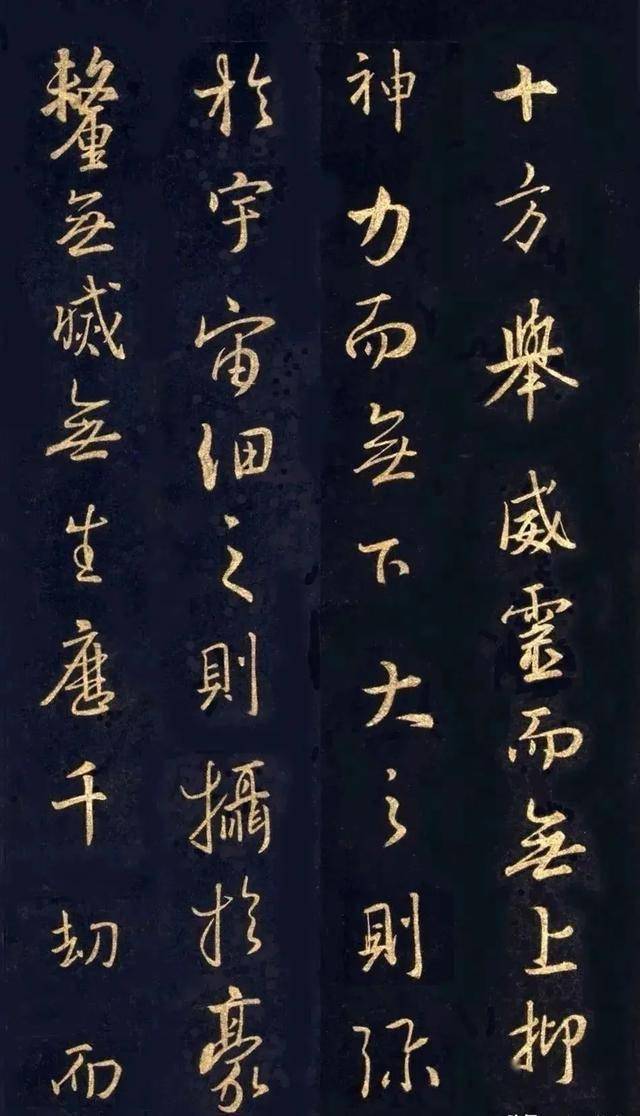 十方舉威靈而無上抑
神力而無下大之則弥
於宇宙細之則攝於豪
釐無滅無生歷千劫而